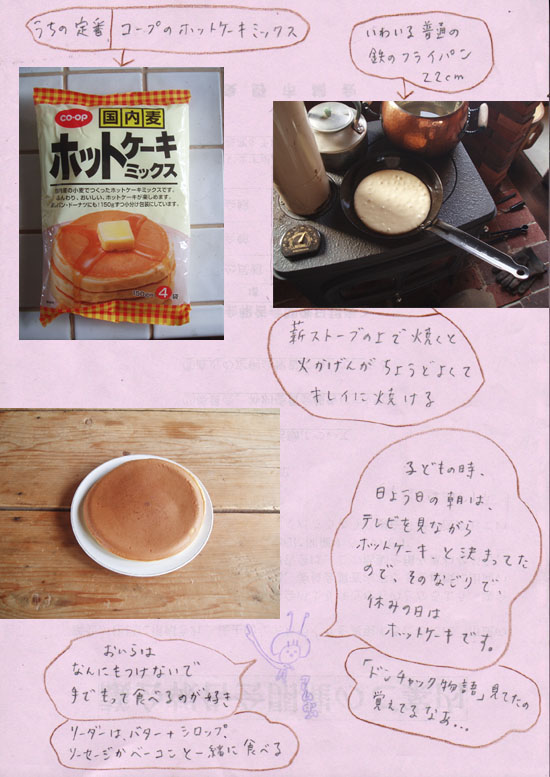 うちの定番 コープのホットケーキミックス
いわゆる普通の
鉄のフライパン
22cm
CO-OP
国内麦
ホットケーキ
ミックス
国内産の小麦でつくったホットケーキミックスです。
ふんわり、おいしい、ホットケーキが楽しめます。
150gずつ小分け包装にしています。
4袋
薪ストーブの上で焼くと
火かげんがちょうどよくて
キレイに焼ける
子どもの時、
日よう日の朝は、
テレビを見ながら
ホットケーキ、と決まってた
ので、そのなごりで、
休みの日は
ホットケーキです。
「ドンチャック物語」見てたの
覚えてるなあ…
おいらは
なんにもつけないで
手でもって食べるのが好き
リーダーは、バター+シロップ、
ソーセージかベーコンと一緒に食べる